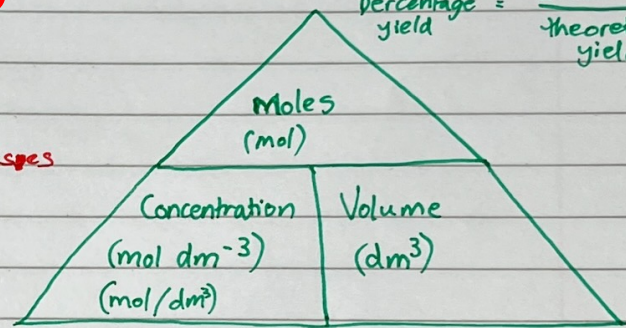 percentage =
yield
theore
yiel
Moles
(mol)
Concentration
(mol dm⁻³)
(mol/dm³)
Volume
(dm³)